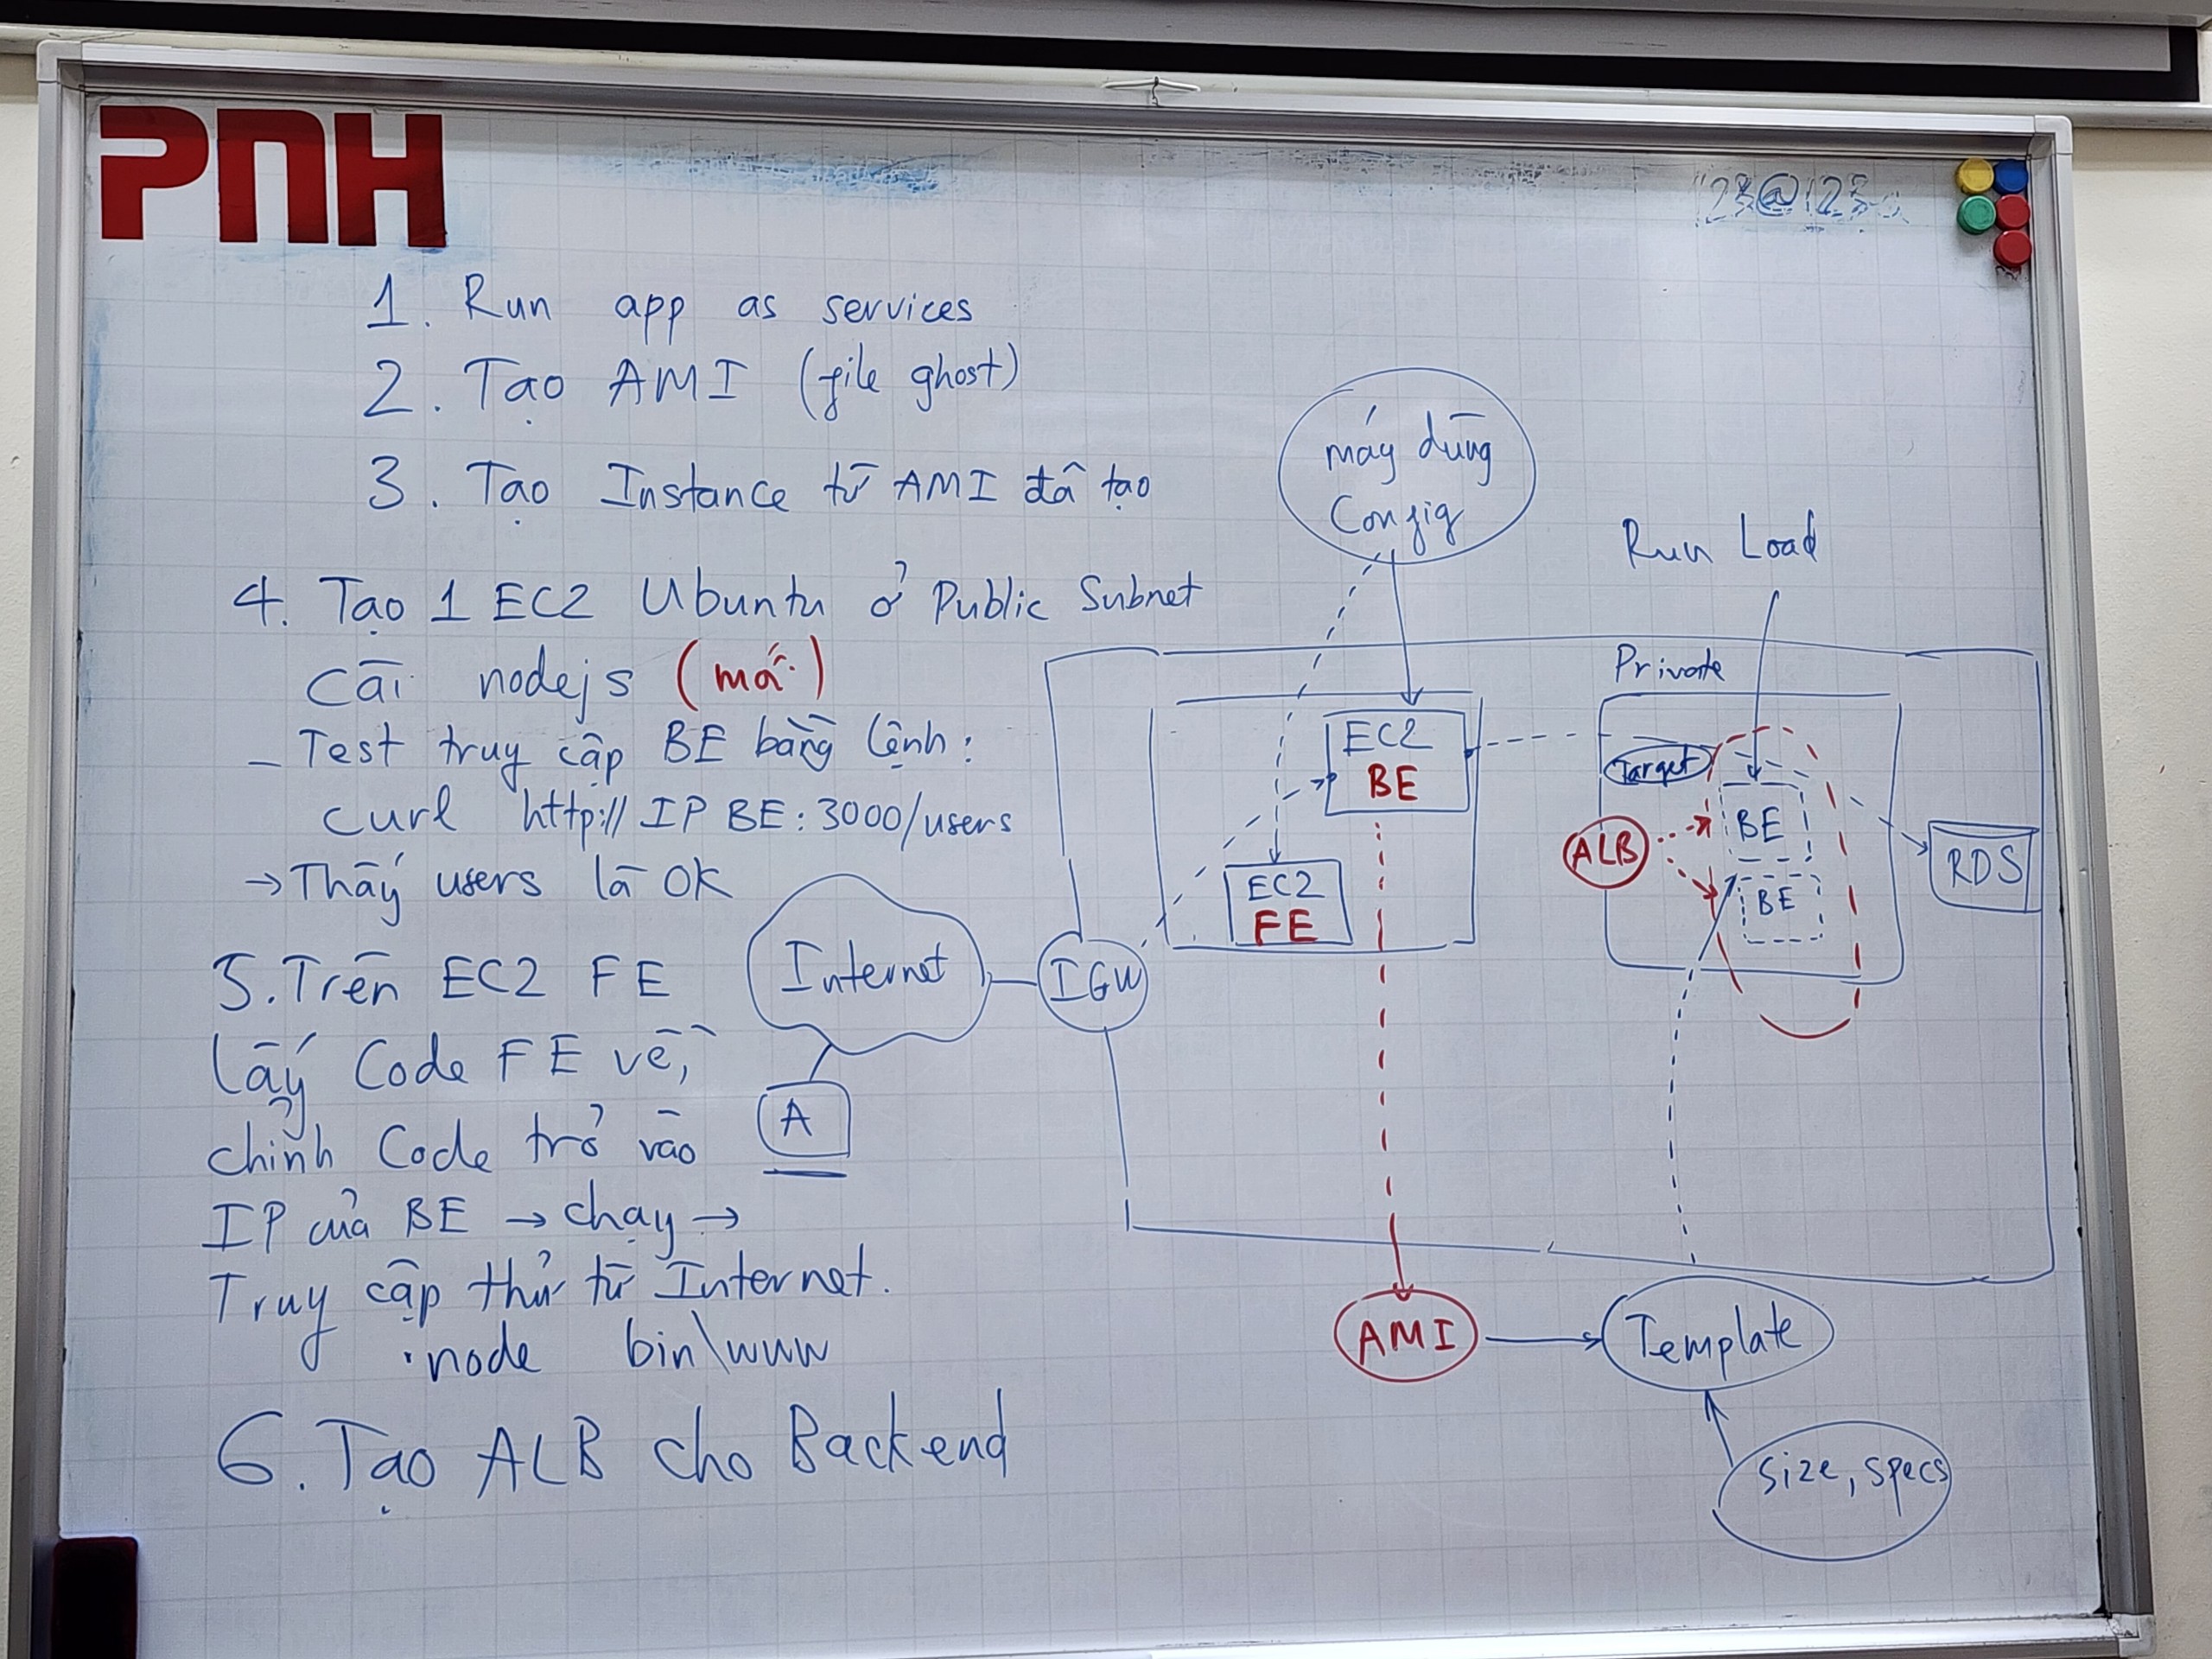 PNH
1. Run app as services
2. Tạo AMI (file ghost)
3. Tạo Instance từ AMI đã tạo
4. Tạo 1 EC2 Ubuntu ở Public Subnet
cài nodejs (mới)
- Test truy cập BE bằng lệnh:
curl http://IP BE:3000/users
→ Thấy users là OK
5. Trên EC2 FE
lấy Code FE về,
chỉnh Code trỏ vào
IP của BE → chạy →
Truy cập thử từ Internet.
node bin\www
6. Tạo ALB cho Backend
máy dùng
Config
Run Load
Private
EC2
BE
Target
BE
ALB
BE
RDS
EC2
FE
Internet
IGW
A
AMI
Template
size, specs